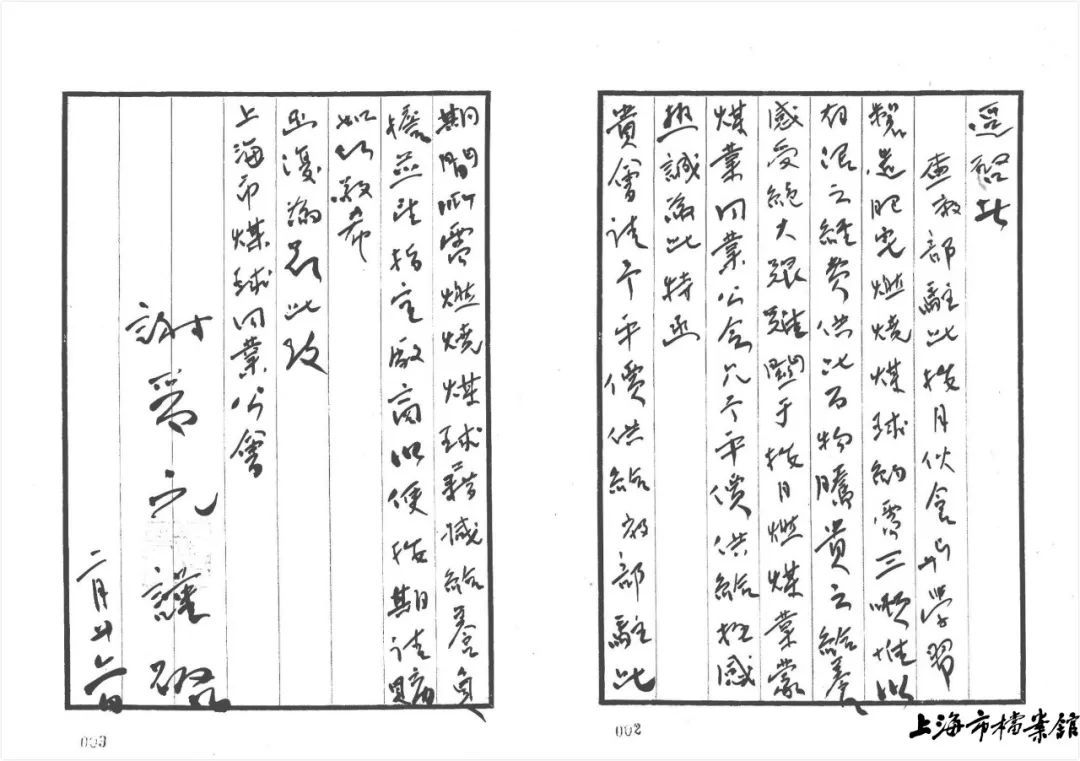 逕啟者
查敝部駐此按月伙食
燃燒煤球約需三噸惟以
有限之經費供此百物騰貴之給養
感受絕大艱難關于按月燃煤業蒙
煤業同業公會允予平價供給極感
熱誠為此特函
貴會請予平價供給敝部駐此
期間所需燃燒煤球藉減給養負
擔并請指定廠商以便按期請購
如何敬希
函復為荷此致
上海市煤球同業公會
謝晉元謹啟
二月廿六日
003
002
上海市檔案館